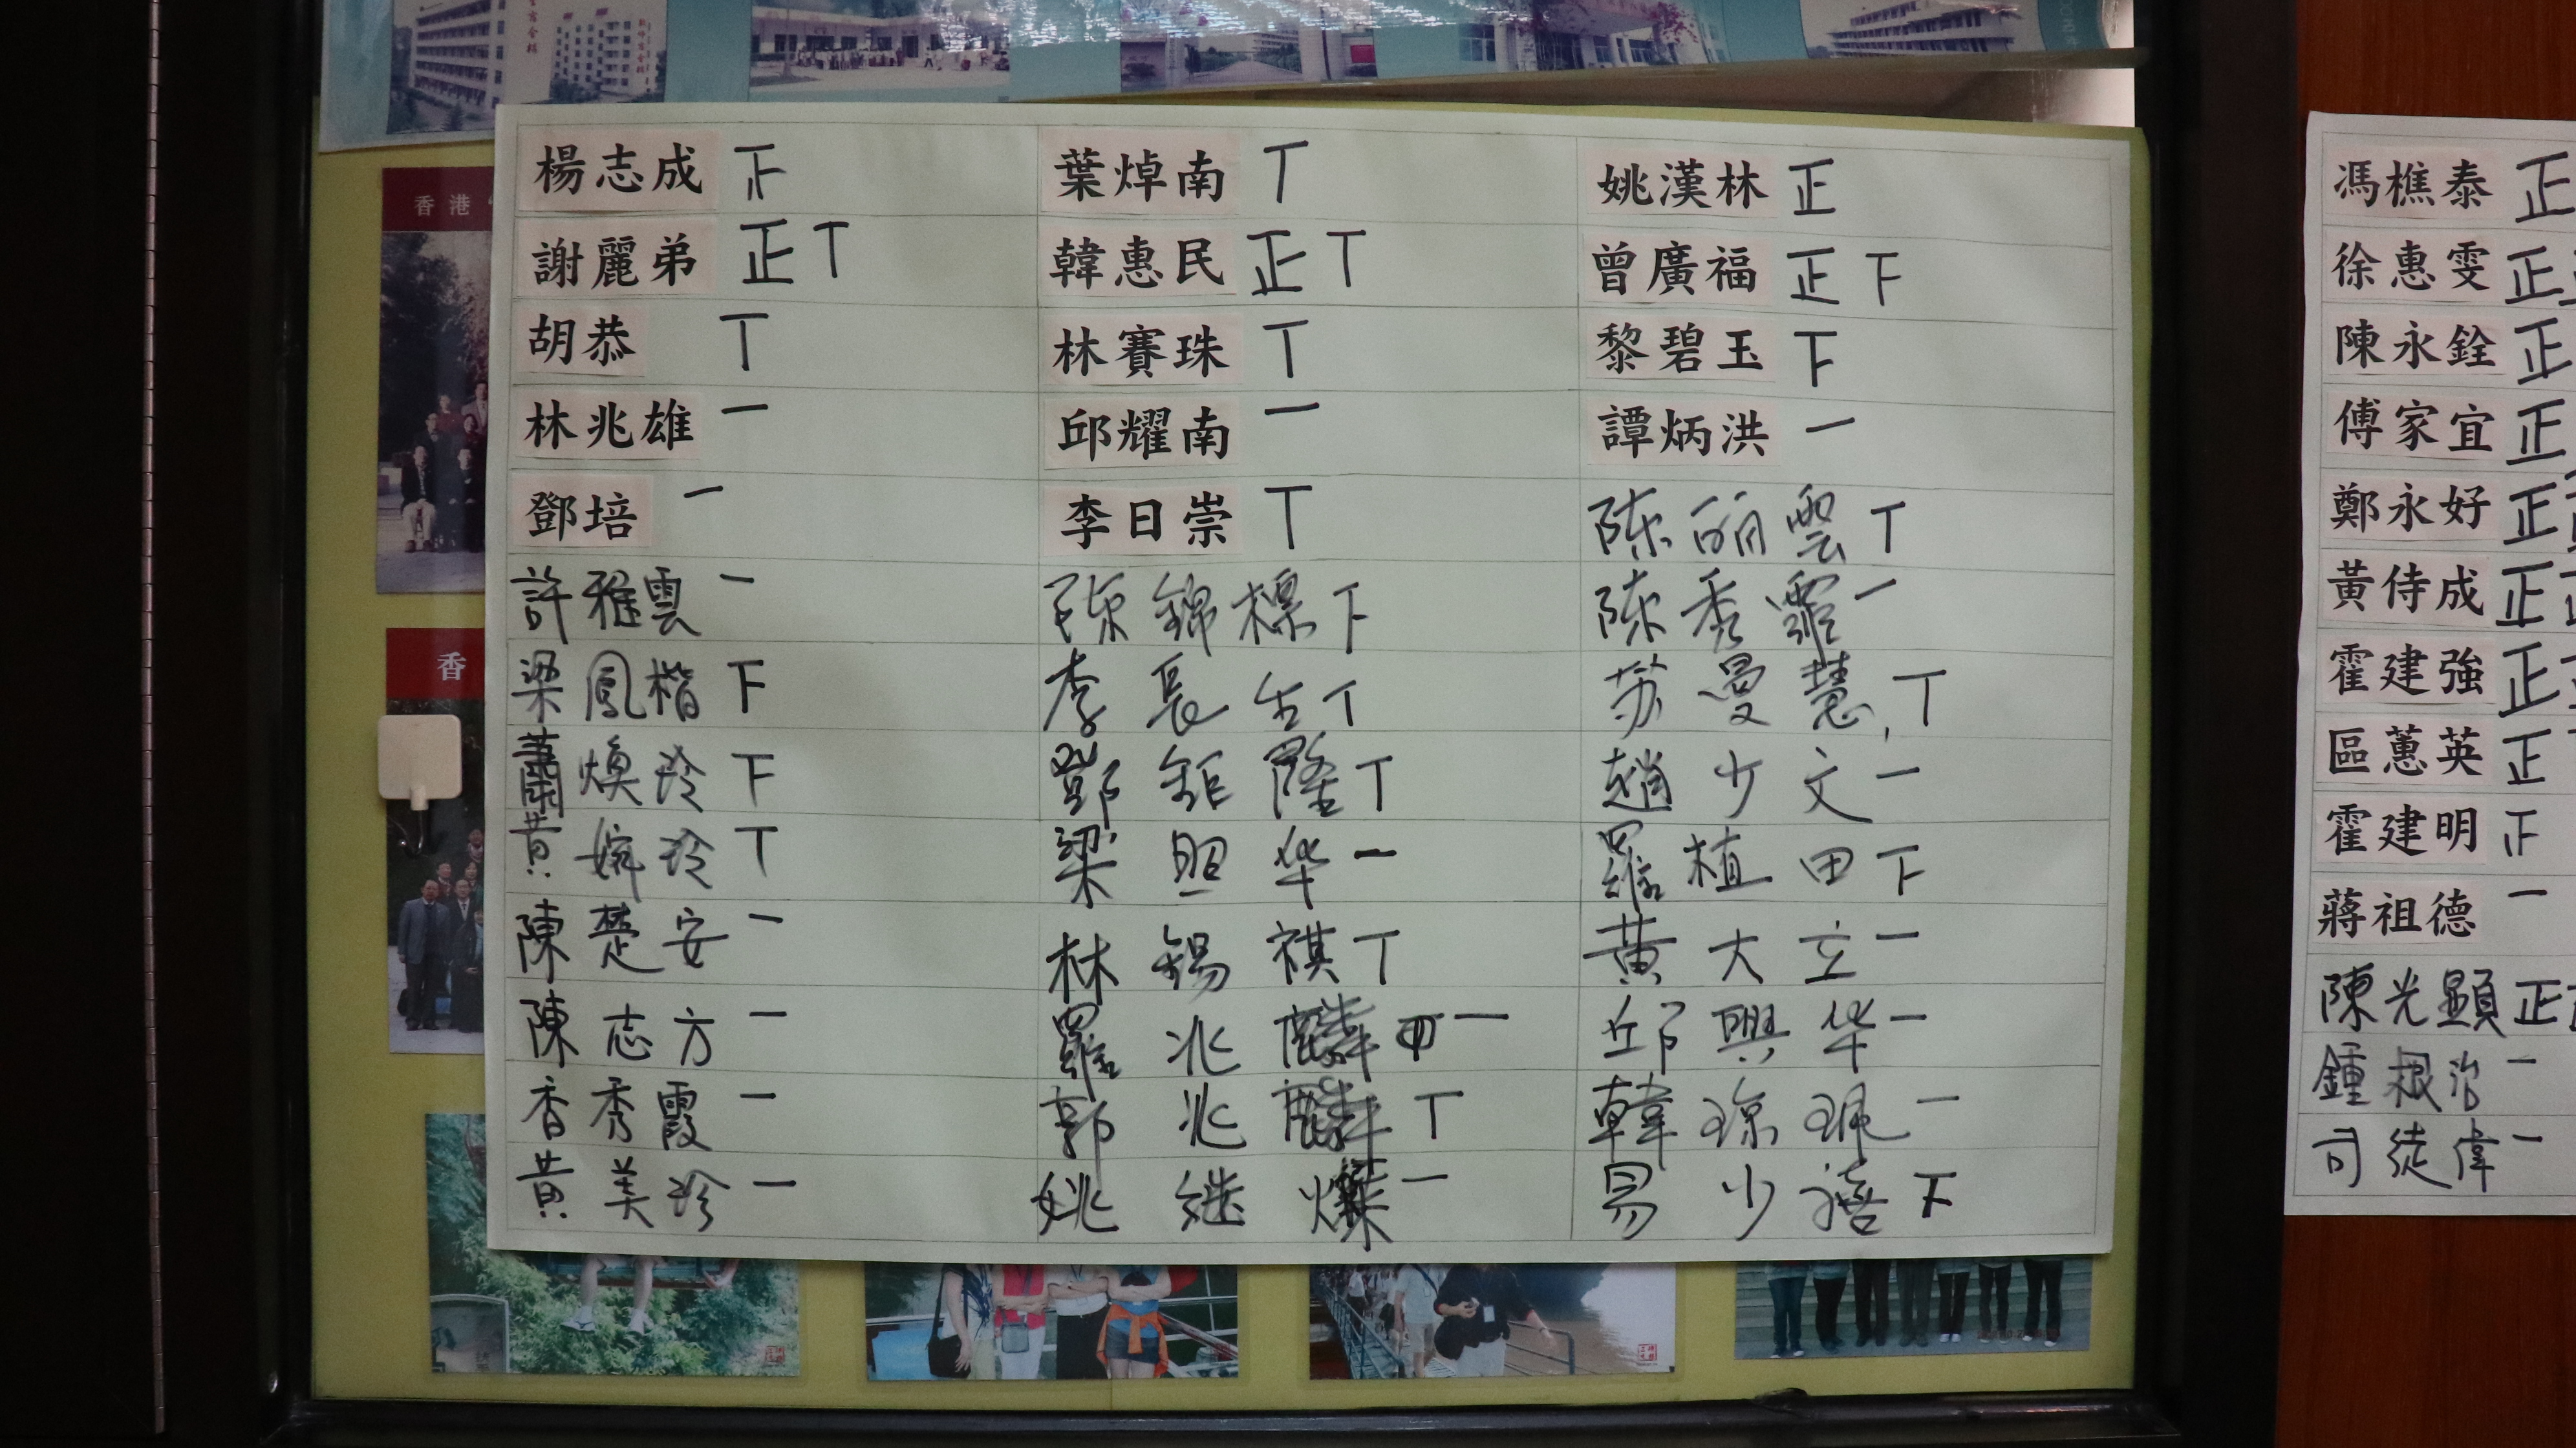 楊志成 正 葉焯南 丅 姚漢林 正
謝麗弟 正丅 韓惠民 正丅 曾廣福 正下
胡恭 丅 林賽珠 丅 黎碧玉 下
林兆雄 一 邱耀南 一 譚炳洪 一
鄧培 一 李日崇 丅 陈丽雲 丅
許雅雲 一 陈錦標 下 陈秀霞 一
梁鳳楷 下 李長生 丅 苏曼慧 丅
蕭煥玲 下 鄧鉅隆 丅 趙少文 一
黃婉玲 丅 梁照华 一 羅植田 下
陳楚安 一 林錫祺 丅 黃大立 一
陳志方 一 羅兆麟 一 邱興华 一
香秀霞 一 郭兆麟 丅 韓琼珮 一
黃美珍 一 姚继燦 一 易少禧 下
馮樵泰 正
徐惠雯 正
陳永銓 正
傅家宜 正
鄭永好 正
黃侍成 正
霍建強 正
區蕙英 正
霍建明
蔣祖德 一
陳光顯 正
鍾根治 一
司徒偉 一
香港
香